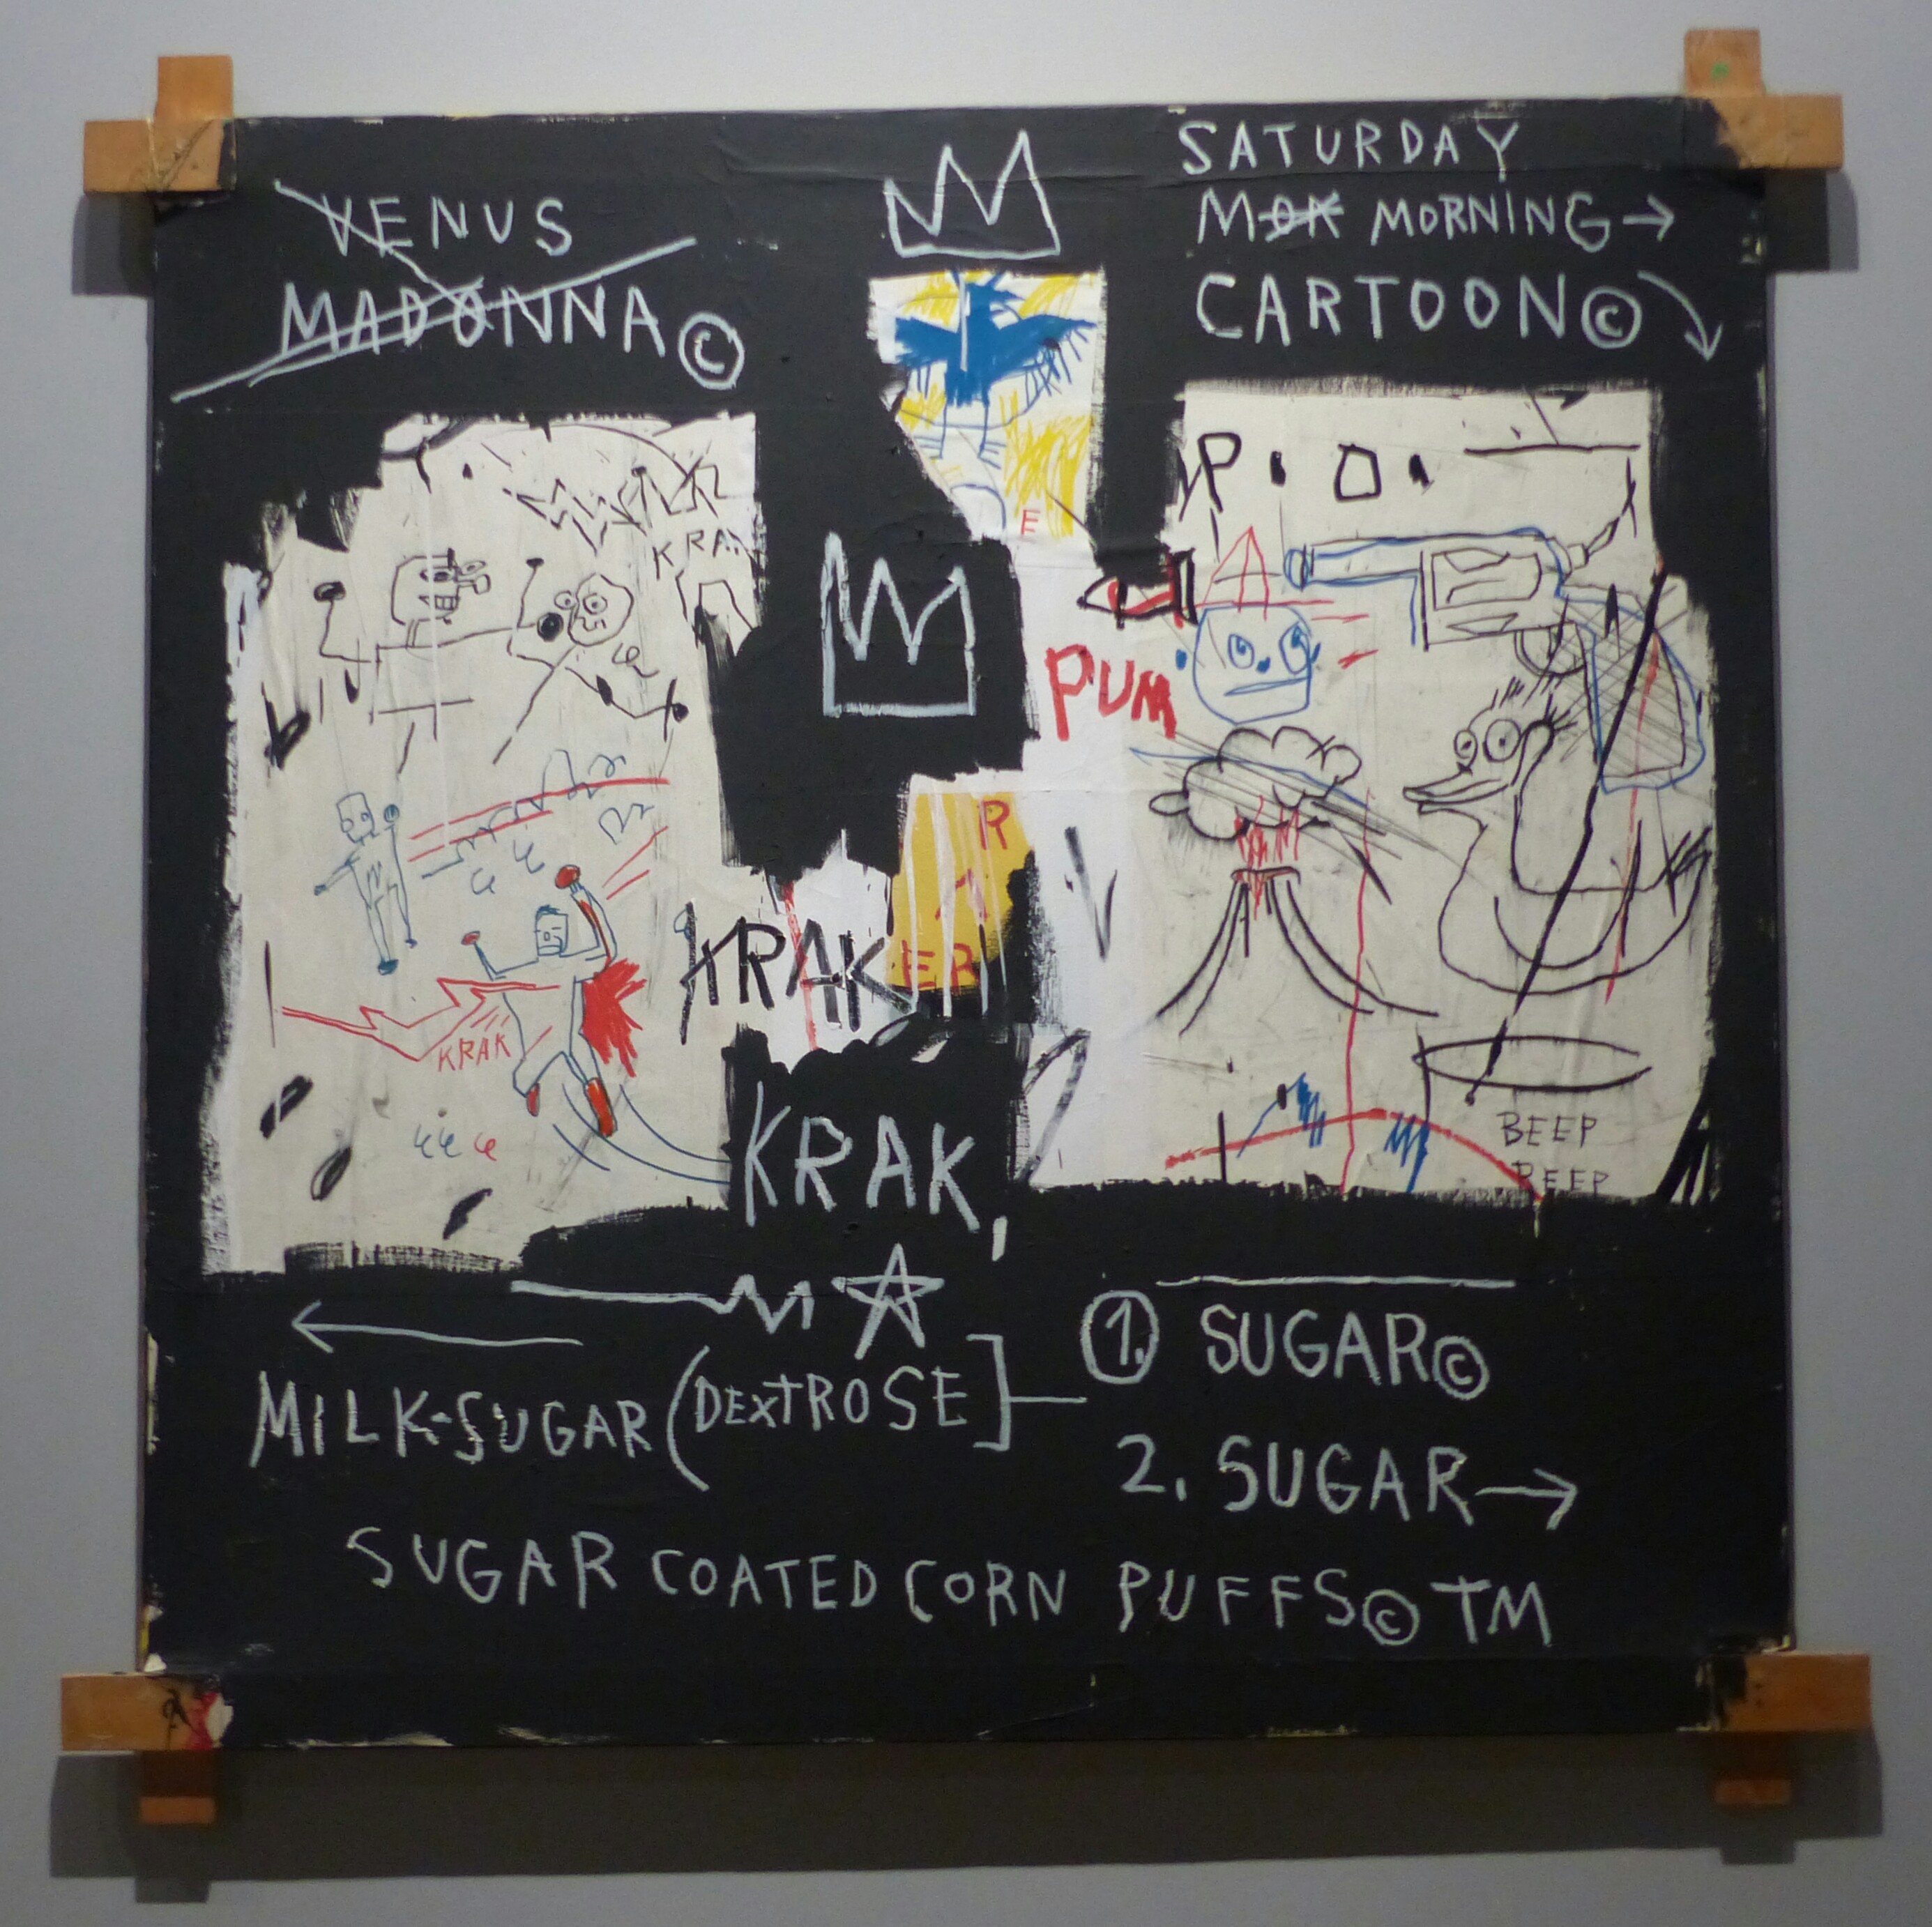 VENUS
MADONNA©
SATURDAY
MOR MORNING→
CARTOON©
P. O.
KRA
F
PUM
R
KRAK ER
KRAK
KRAK,
BEEP
BEEP
← 
MILK-SUGAR (DEXTROSE]
1. SUGAR©
2. SUGAR→
SUGAR COATED CORN PUFFS© TM